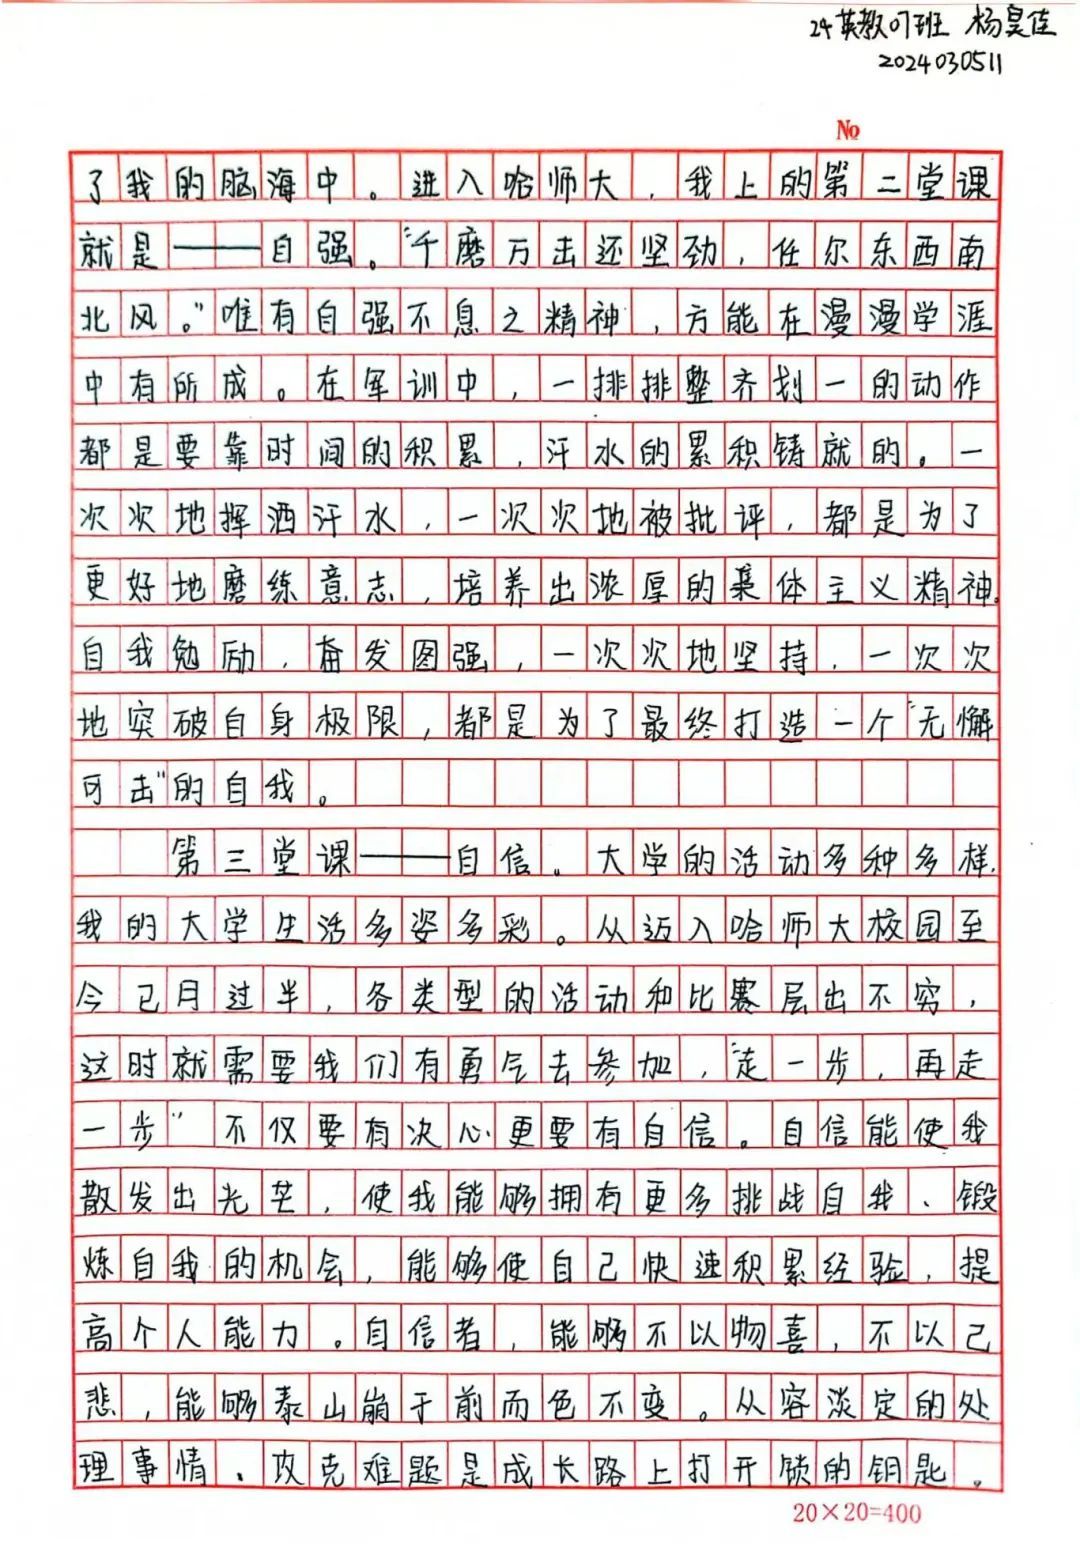 24英教07班 杨昊佳
2024030511
№
了我的脑海中。进入哈师大，我上的第二堂课
就是——自强。“千磨万击还坚劲，任尔东西南
北风。”唯有自强不息之精神，方能在漫漫学涯
中有所成。在军训中，一排排整齐划一的动作
都是要靠时间的积累，汗水的累积铸就的。一
次次地挥洒汗水，一次次地被批评，都是为了
更好地磨练意志，培养出浓厚的集体主义精神。
自我勉励，奋发图强，一次次地坚持，一次次
地突破自身极限，都是为了最终打造一个“无懈
可击”的自我。
第三堂课——自信。大学的活动多种多样，
我的大学生活多姿多彩。从迈入哈师大校园至
今已月过半，各类型的活动和比赛层出不穷，
这时就需要我们有勇气去参加，“走一步，再走
一步”不仅要有决心更要有自信。自信能使我
散发出光芒，使我能够拥有更多挑战自我、锻
炼自我的机会，能够使自己快速积累经验，提
高个人能力。自信者，能够不以物喜，不以己
悲，能够泰山崩于前而色不变。从容淡定的处
理事情、攻克难题是成长路上打开锁的钥匙。
20×20=400